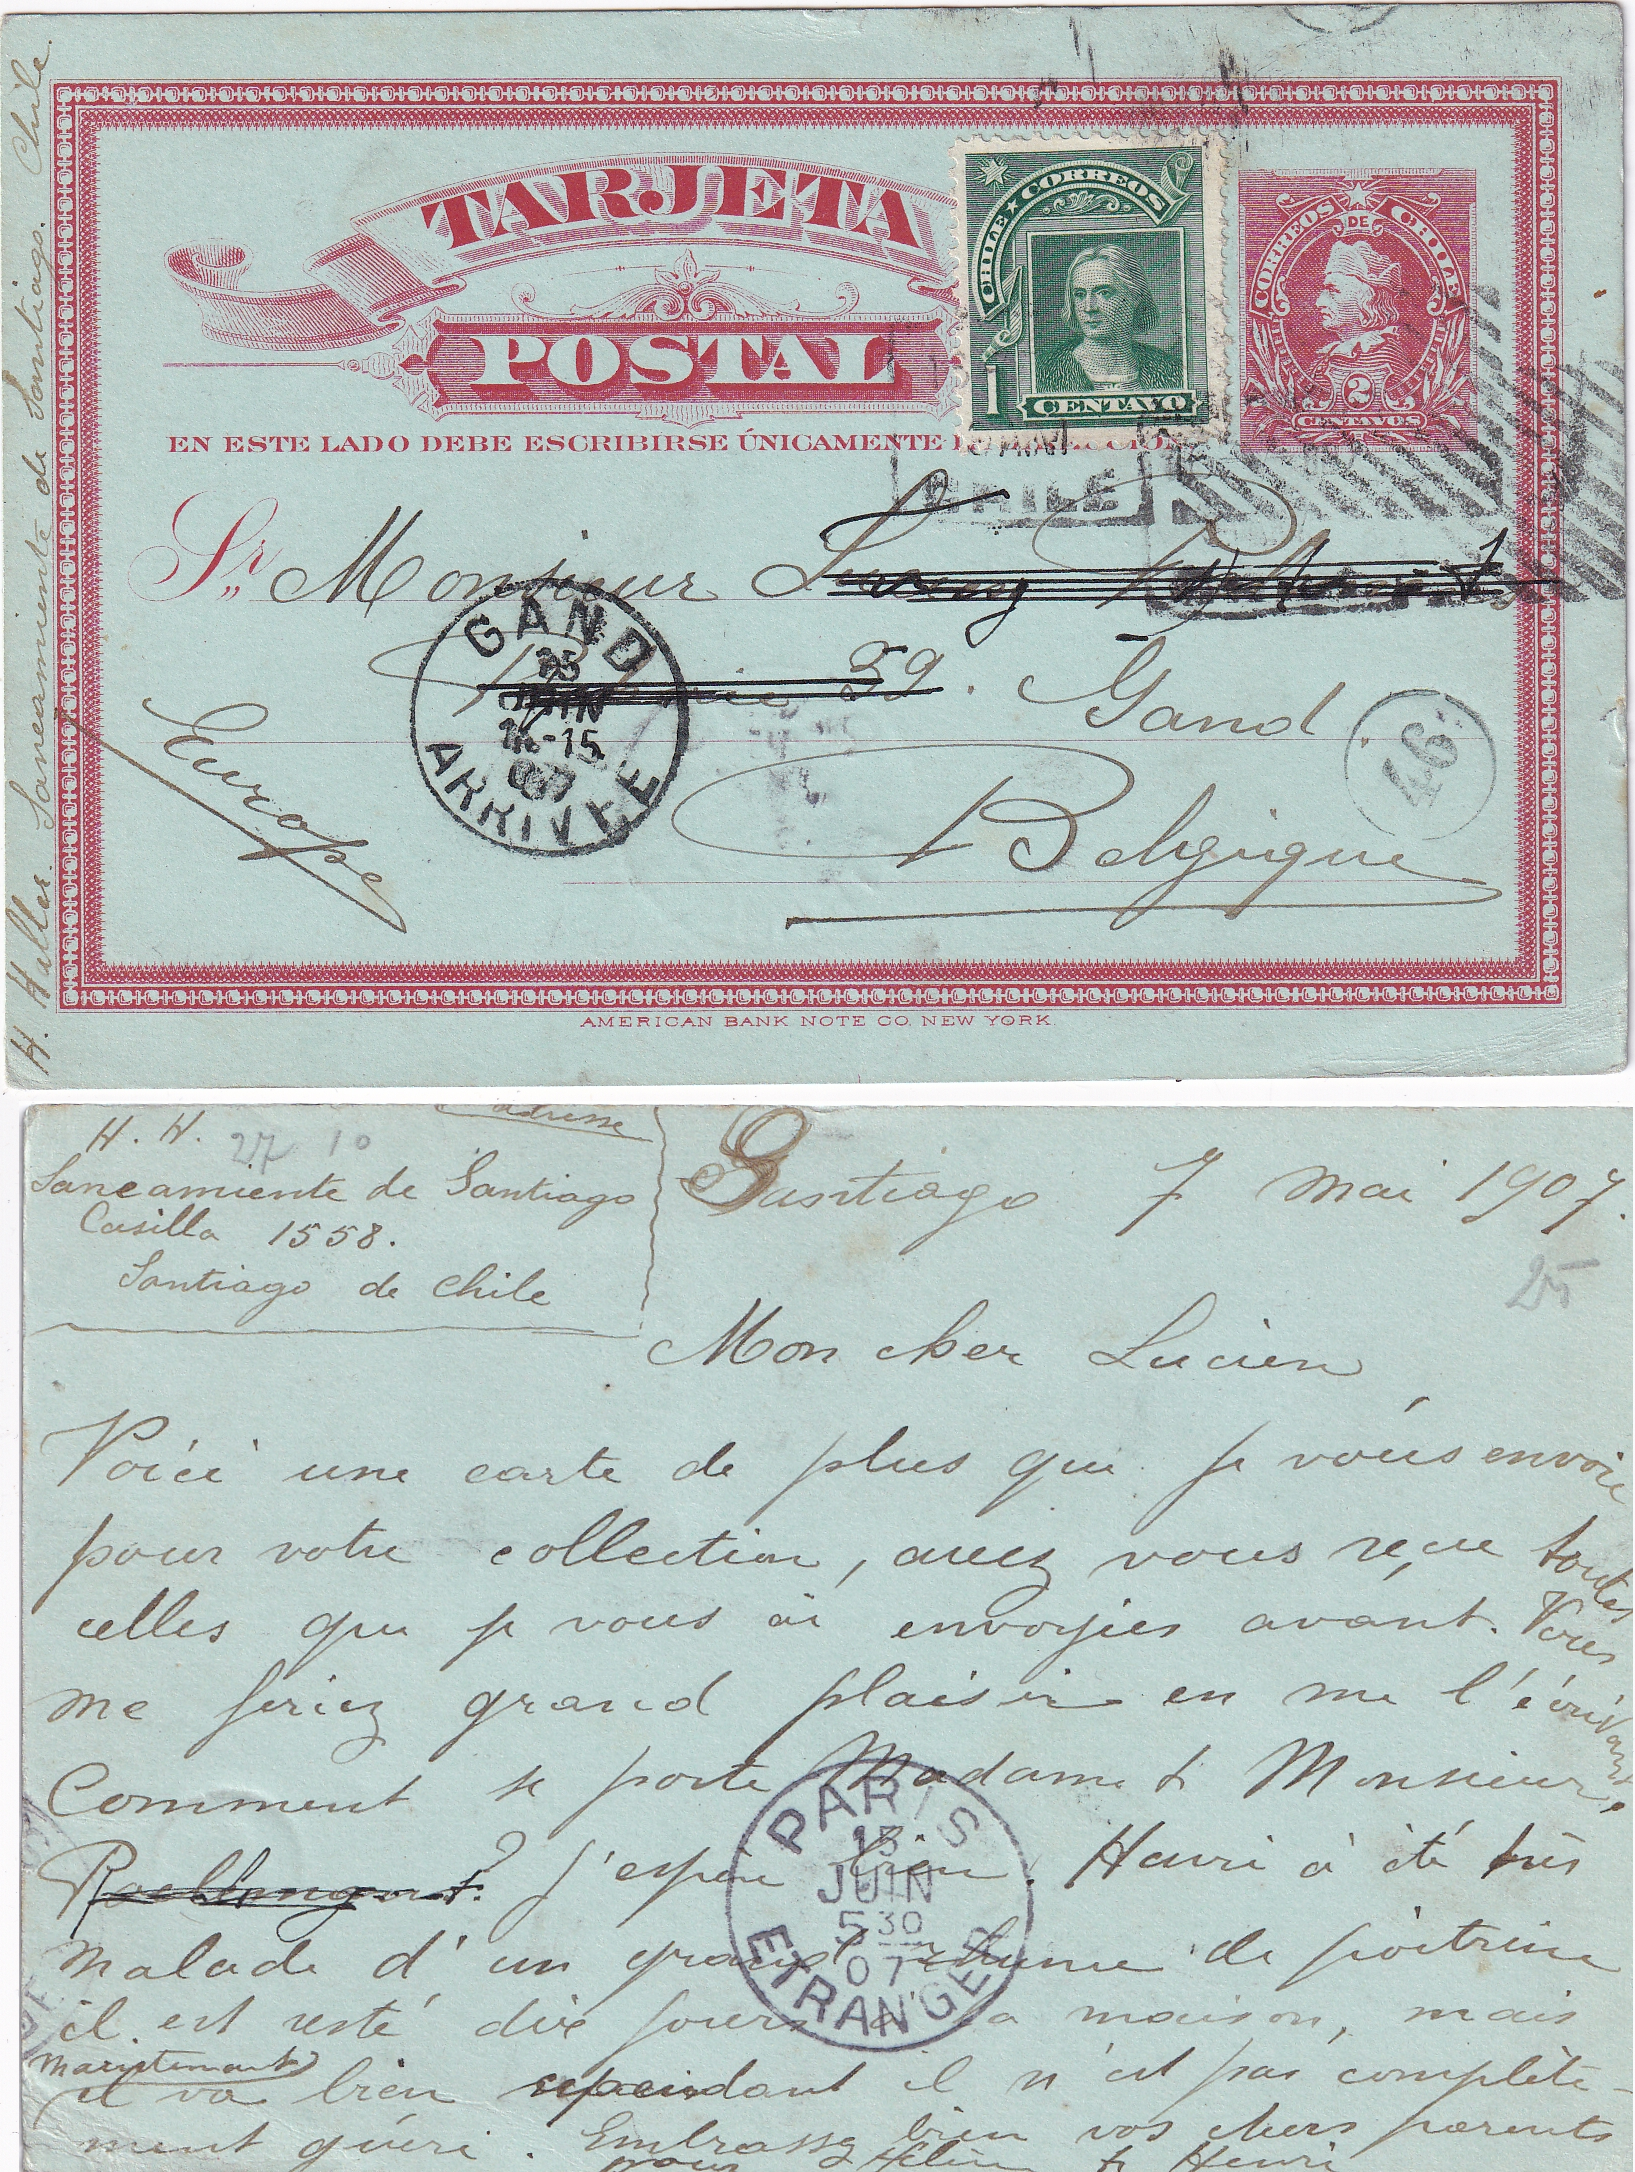 H. Haller. Saneamiente de Santiago. Chile.
TARJETA
POSTAL
CHILE ★ CORREOS
1 CENTAVO
CORREOS DE CHILE
2
CENTAVOS
EN ESTE LADO DEBE ESCRIBIRSE ÚNICAMENTE
CHILE
Sr. Monsieur
39. Gand.
GAND
15
JUIN
-15
07
ARRIVEE
46
Europe
Belgique
AMERICAN BANK NOTE CO. NEW YORK.
adresse
H. H.
27 10
Saneamiente de Santiago
Casilla 1558.
Santiago de Chile
Santiago 7 Mai 1907.
25
Mon cher Lucien
Voici une carte de plus que je vous envoie
pour votre collection, avez vous reçue toutes
celles que je vous ai envoyées avant. Vous
me feriez grand plaisir en me l'écrivant.
Comment se porte Madame & Monsieur
j'espère bien. Henri à été très
malade d'un grand rhume de poitrine
il est resté dix jours à la maison, mais
maintenant
il va bien cependant il n'est pas complète-
ment guéri. Embrassez bien vos chers parents
pour Hélène & Henri
PARIS
13
JUIN
5 30
07
ETRANGER